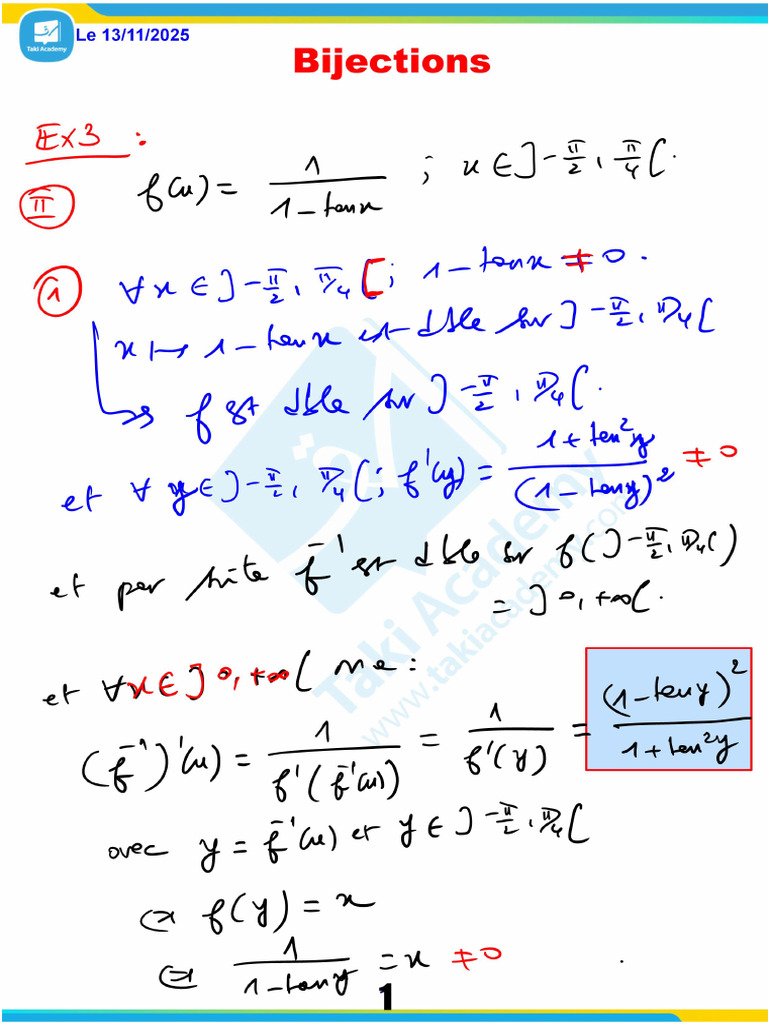 Taki Academy
Le 13/11/2025
Bijections
Ex3 :
II
f(x) = 1 / (1 - tanx) ; x ∈ ]-π/2, π/4[.
1
∀ x ∈ ]-π/2, π/4[ ; 1 - tanx ≠ 0.
x ↦ 1 - tanx est dble sur ]-π/2, π/4[
↳ f est dble sur ]-π/2, π/4[.
et ∀ y ∈ ]-π/2, π/4[ ; f'(y) = (1 + tan²y) / (1 - tany)² ≠ 0
et par suite f⁻¹ est dble sur f(]-π/2, π/4[)
= ]0, +∞[.
et ∀ x ∈ ]0, +∞[ on a :
(f⁻¹)'(x) = 1 / f'(f⁻¹(x)) = 1 / f'(y) = (1 - tany)² / (1 + tan²y)
avec y = f⁻¹(x) et y ∈ ]-π/2, π/4[
⇔ f(y) = x
⇔ 1 / (1 - tany) = x ≠ 0
1
Taki Academy
www.takiacademy.com